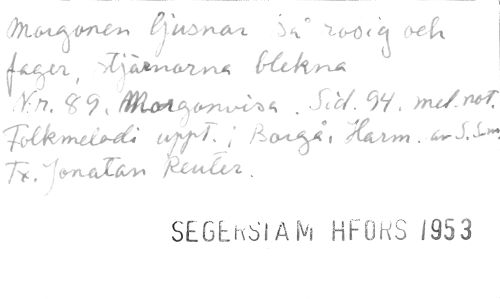 Morgonen ljusnar så rosig och
fager, stjärnorna blekna
N:r. 89. Morgonvisa. Sid. 94. mel. not.
Folkmelodi uppt. i Borgå. Harm. av S. Sm.
Tx. Jonatan Reuter.
SEGERSTAM HFORS 1953